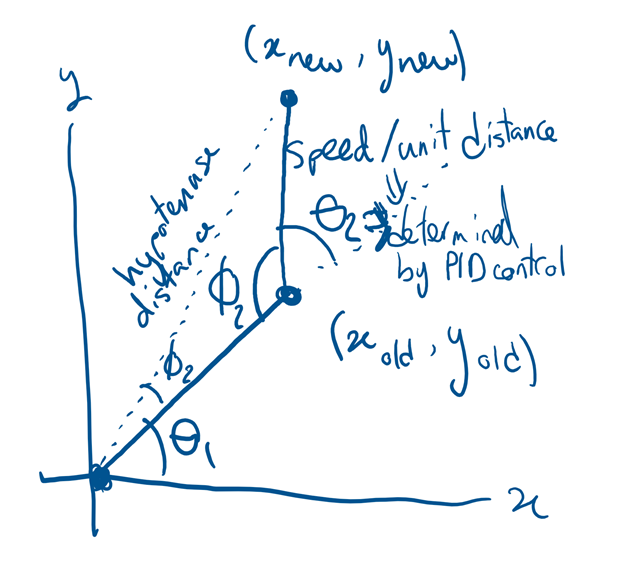 (x new , y new)
y
speed/unit distance
hypotenuse
distance
θ2 → determined
by PID control
ϕ2
(x old , y old)
ϕ2
θ1
x